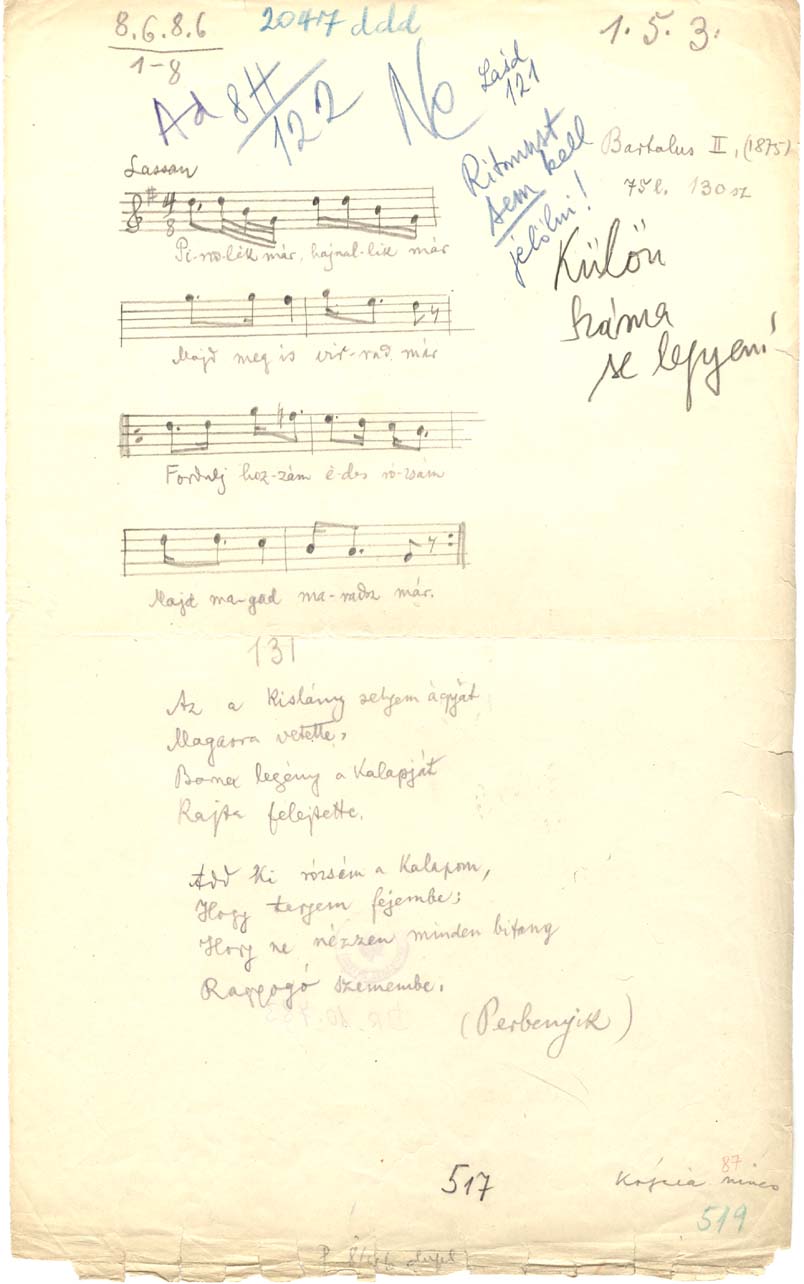 8.6.8.6
1-8
2047 ddd
1.5.3.
Ad 8H/122
No
Lásd
121
Ritmust
sem kell
jelölni!
Bartalus II, (1875)
75 l. 130 sz
Külön
száma
se legyen!
Lassan
4
8
Pi-ro-lik már, hajnal-lik már
Majd meg is vir-rad már
Fordulj hoz-zám é-des ró-zsám
Majd ma-gad ma-radsz már.
131
Az a kislány selyem ágyját
Magasra vetette,
Barna legény a kalapját
Rajta felejtette.
Add ki rózsám a kalapom,
Hogy tegyem fejembe;
Hogy ne nézzen minden bitang
Ragyogó szemembe.
(Perbenyik)
517
87
Kópia nincs
519